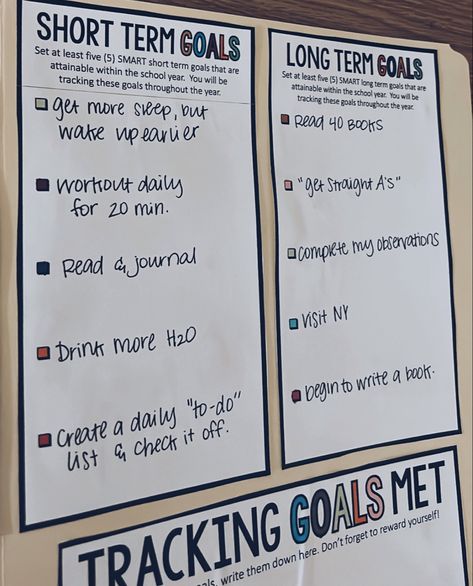 SHORT TERM GOALS
Set at least five (5) SMART short term goals that are
attainable within the school year. You will be
tracking these goals throughout the year.
get more sleep, but
wake up earlier
workout daily
for 20 min.
Read & journal
Drink more H2O
Create a daily "to-do"
list & check it off.
LONG TERM GOALS
Set at least five (5) SMART long term goals that are
attainable within the school year. You will be
tracking these goals throughout the year.
Read 40 BOOKS
"get straight A's"
complete my observations
visit NY
begin to write a book.
TRACKING GOALS MET
als, write them down here. Don't forget to reward yourself!